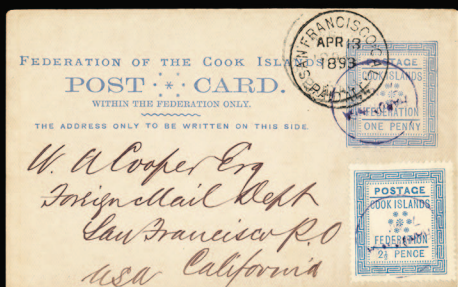 FEDERATION OF THE COOK ISLANDS
POST CARD.
WITHIN THE FEDERATION ONLY.
THE ADDRESS ONLY TO BE WRITTEN ON THIS SIDE.
SAN FRANCISCO
APR 13
1893
POSTAGE
COOK ISLANDS
FEDERATION
ONE PENNY
W. A Cooper Esq
Foreign Mail Dept
San Francisco P.O
USA California
POSTAGE
COOK ISLANDS
FEDERATION
2½ PENCE